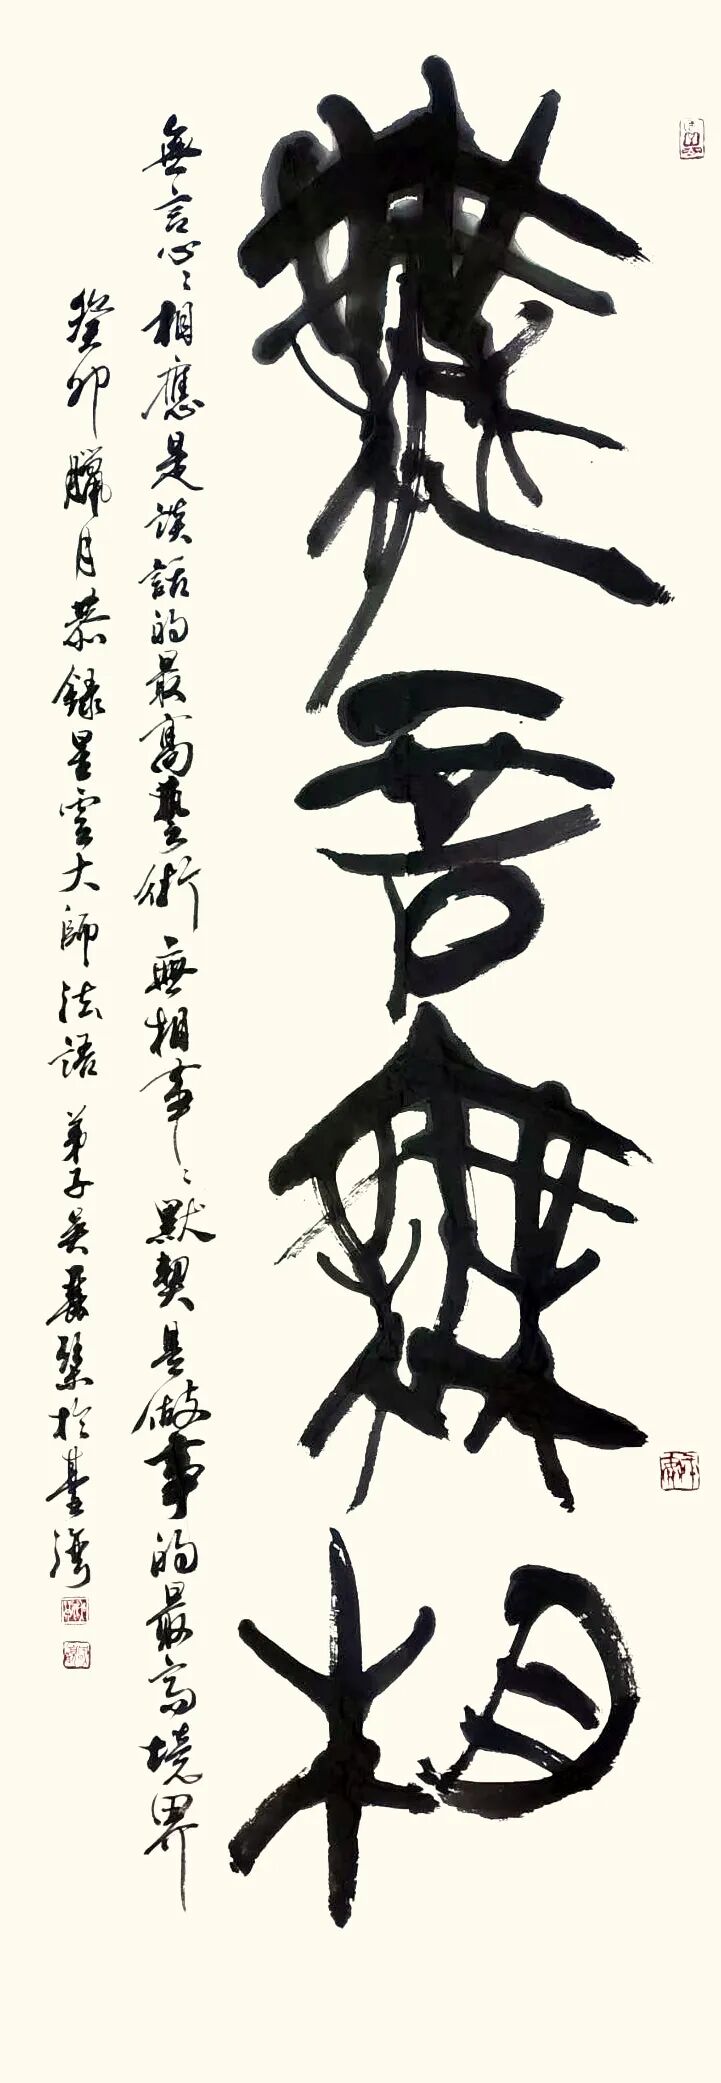 無言無相
無言心心相應是談話的最高藝術 無相事事默契是做事的最高境界
癸卯臘月恭錄星雲大師法語 弟子吳麗琴於臺灣